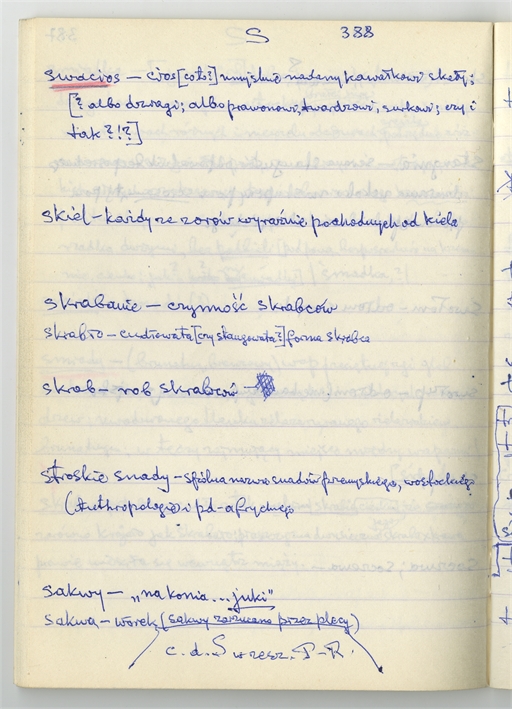 S 388
swacios — cios [coło?] umyślnie nadany kawałkowi skały;
[? albo dzwagi; albo prawonowi, twardzowi, surkowi; czy i
tak?!?]
skiel — każdy ze zorgów wyraźnie pochodnych od kiela
skrabanie — czynność skrabców
skrabło — cudrowata [czy skaugowata?] forma skrabca
skrab — rob skrabców —
stroskie snady — spólna nazwa snadów przemyskiego,
(Anthropologie) i pd-afryckiego
sakwy — „na konia...juki"
sakwa — worek (sakwy zarzucano przez plecy)
c.d. S wresz. P-R.